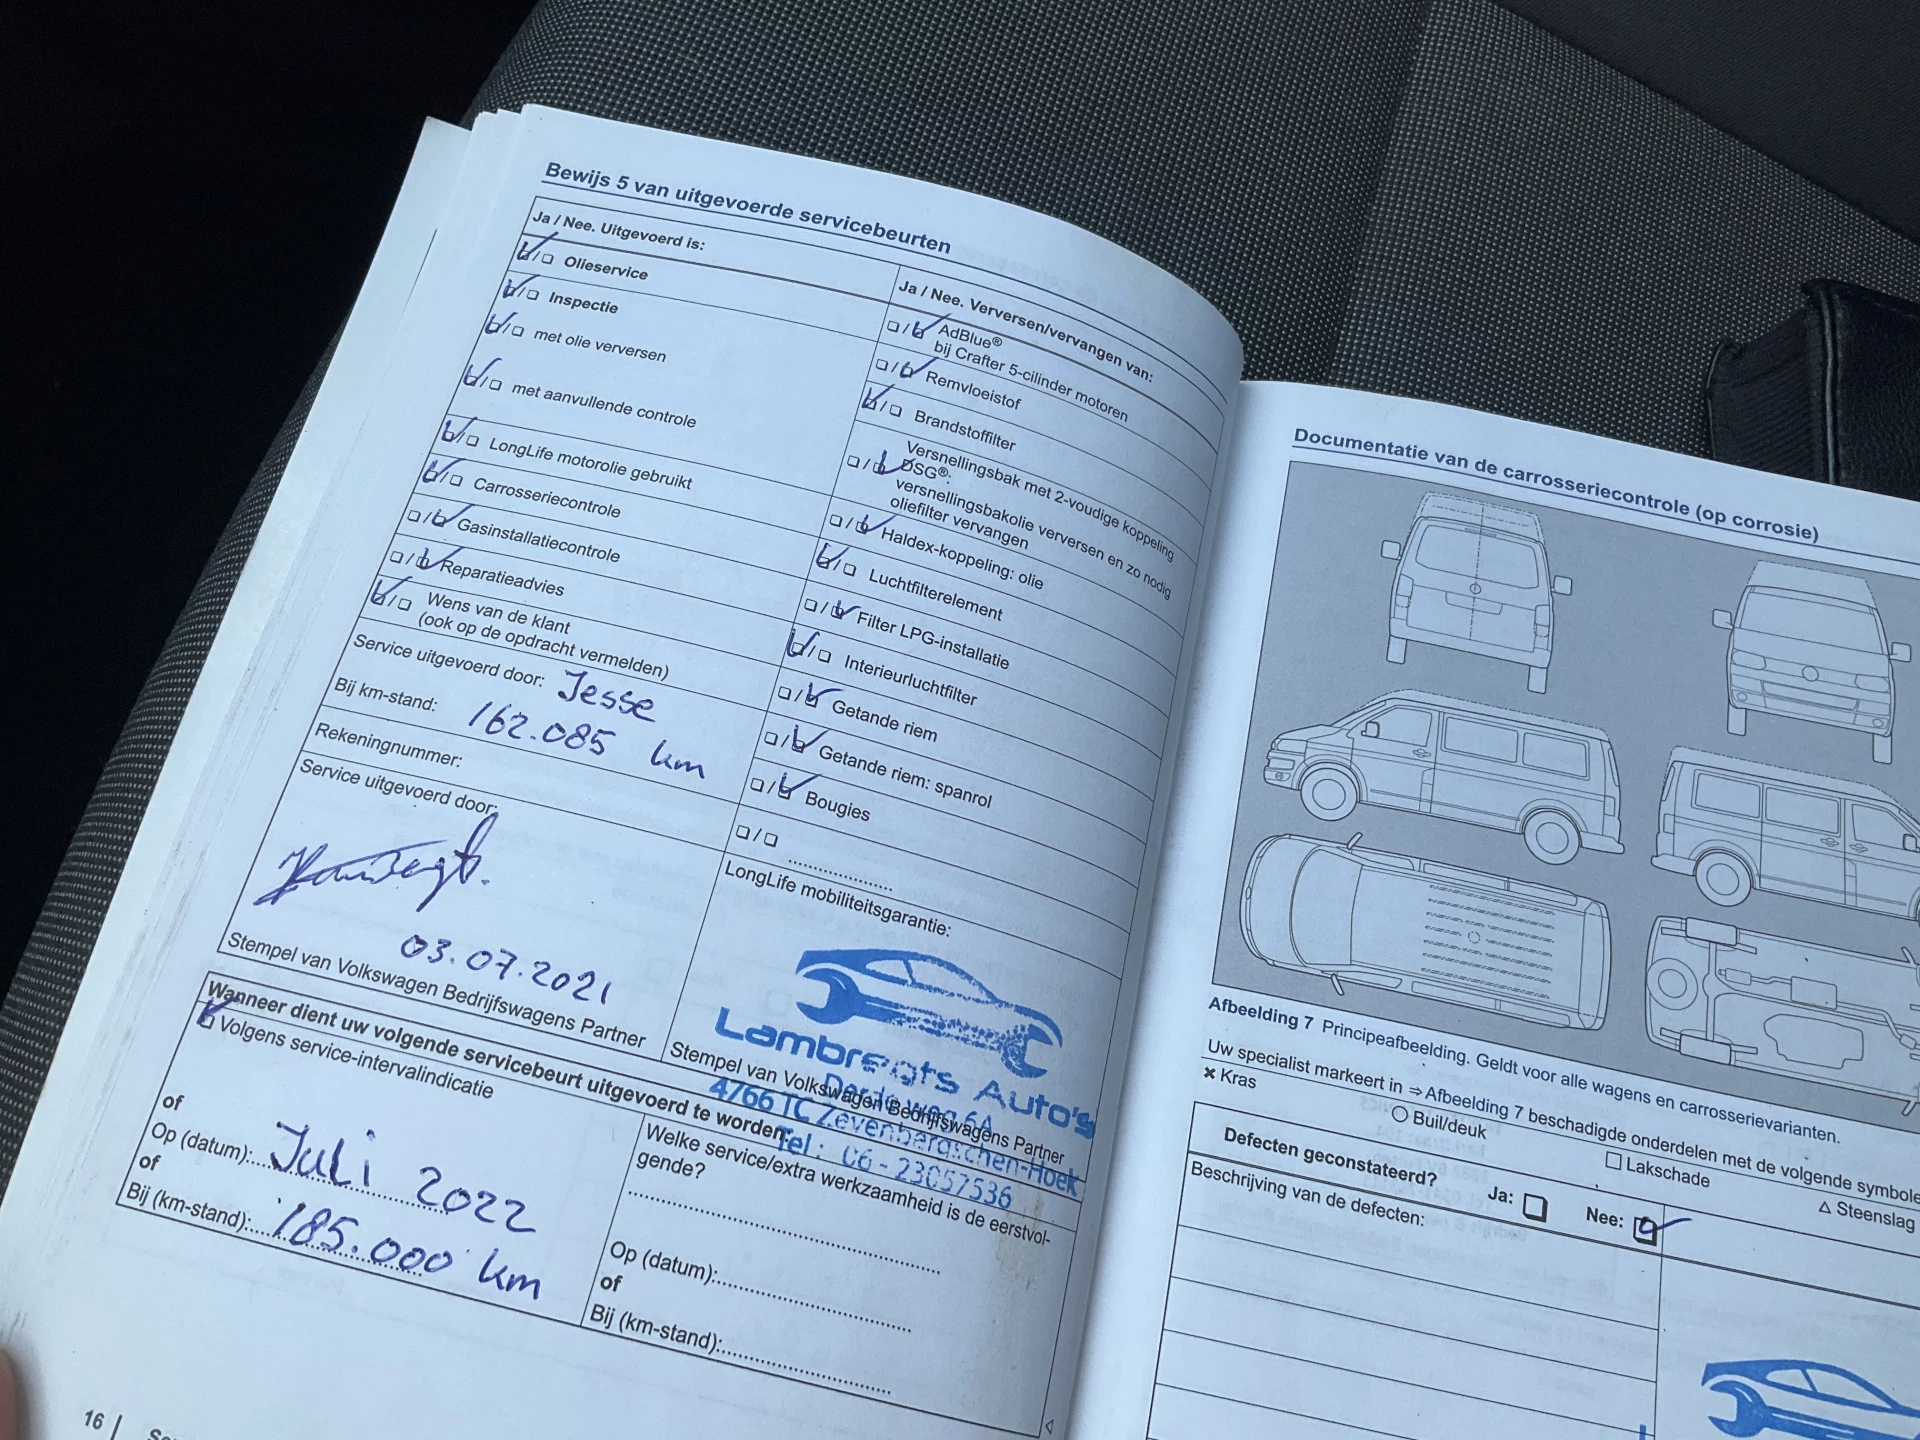 Bewijs 5 van uitgevoerde servicebeurten
Ja / Nee. Uitgevoerd is:
Olieservice
Inspectie
met olie verversen
met aanvullende controle
LongLife motorolie gebruikt
Carrosseriecontrole
Gasinstallatiecontrole
Reparatieadvies
Wens van de klant
(ook op de opdracht vermelden)
Service uitgevoerd door: Jesse
Bij km-stand: 162.085 km
Rekeningnummer:
Service uitgevoerd door:
03.07.2021
Stempel van Volkswagen Bedrijfswagens Partner
Ja / Nee. Verversen/vervangen van:
AdBlue®
bij Crafter 5-cilinder motoren
Remvloeistof
Brandstoffilter
Versnellingsbak met 2-voudige koppeling
DSG®:
versnellingsbakolie verversen en zo nodig
oliefilter vervangen
Haldex-koppeling: olie
Luchtfilterelement
Filter LPG-installatie
Interieurluchtfilter
Getande riem
Getande riem: spanrol
Bougies
LongLife mobiliteitsgarantie:
Lambregts Auto's
6A
4766 TC Zevenbergschen-Hoek
Tel: 06-23057536
Stempel van Volkswagen Bedrijfswagens Partner
Wanneer dient uw volgende servicebeurt uitgevoerd te worden:
Volgens service-intervalindicatie
of
Op (datum): Juli 2022
of
Bij (km-stand): 185.000 km
Welke service/extra werkzaamheid is de eerstvol-
gende?
Op (datum):
of
Bij (km-stand):
16
Documentatie van de carrosseriecontrole (op corrosie)
Afbeelding 7 Principeafbeelding. Geldt voor alle wagens en carrosserievarianten.
Uw specialist markeert in ⇒ Afbeelding 7 beschadigde onderdelen met de volgende symbole
× Kras
○ Buil/deuk
□ Lakschade
△ Steenslag
Defecten geconstateerd?
Ja:
Nee:
Beschrijving van de defecten: